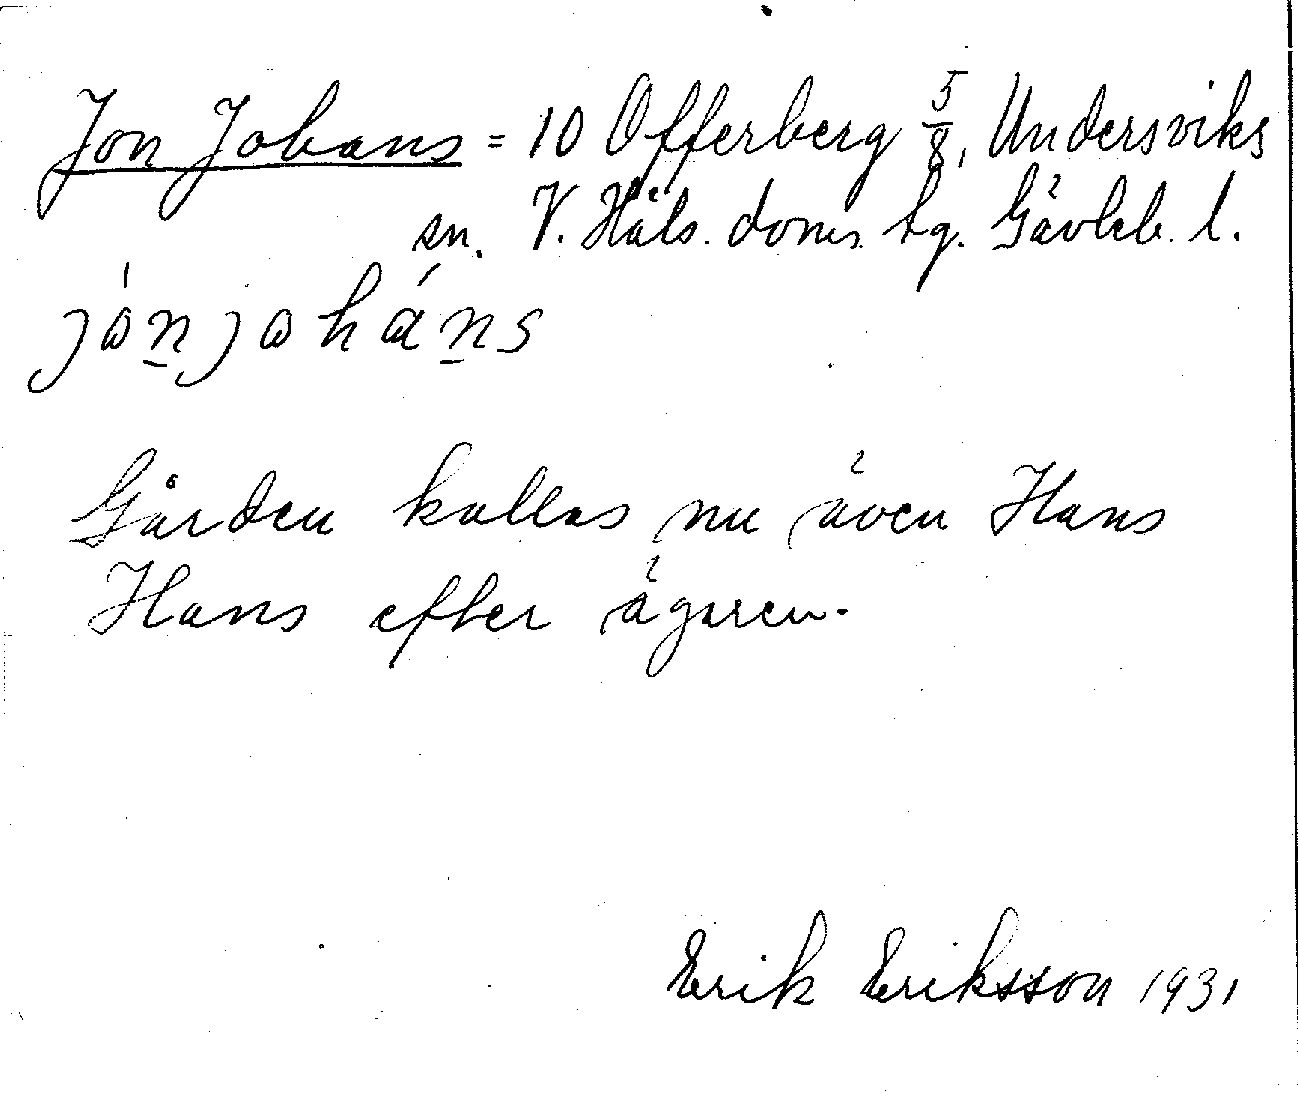 Jon Johans = 10 Offerberg 5/8, Undersviks
sn. V. Häls. doms. tg. Gävleb. l.
jòn joháns
Gården kallas nu även Hans
Hans efter ägaren.
Erik Eriksson 1931